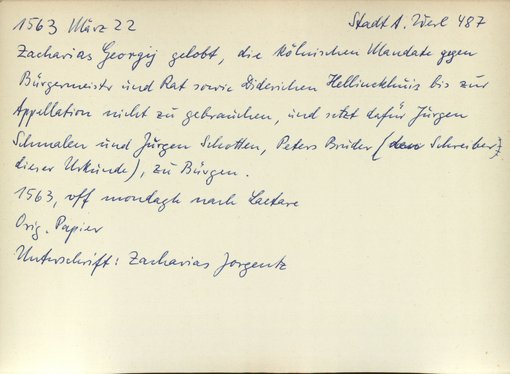 1563 März 22 Stadt A. Werl 487
Zacharias Georgij gelobt, die kölnischen Mandate gegen
Bürgermeister und Rat sowie Diderichen Hellinckhuis bis zur
Appellation nicht zu gebrauchen, und setzt dafür Jürgen
Schmalen und Jürgen Schotten, Peters Bruder (den Schreiber
dieser Urkunde), zu Bürgen.
1563, vff mondagh nach Laetare
Orig. Papier
Unterschrift: Zacharias Jorgentz